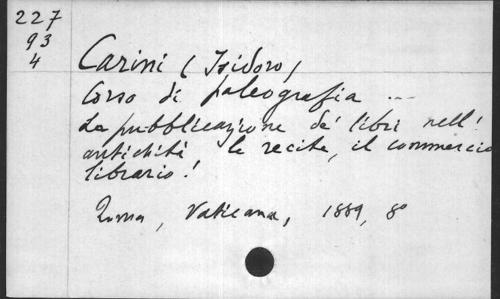 227
93
4
Carini (Isidoro)
Corso di paleografia ...
La pubblicazione de' libri nell'
antichità le recite, il commercio
librario!
Roma, Vaticana, 1889, 8°